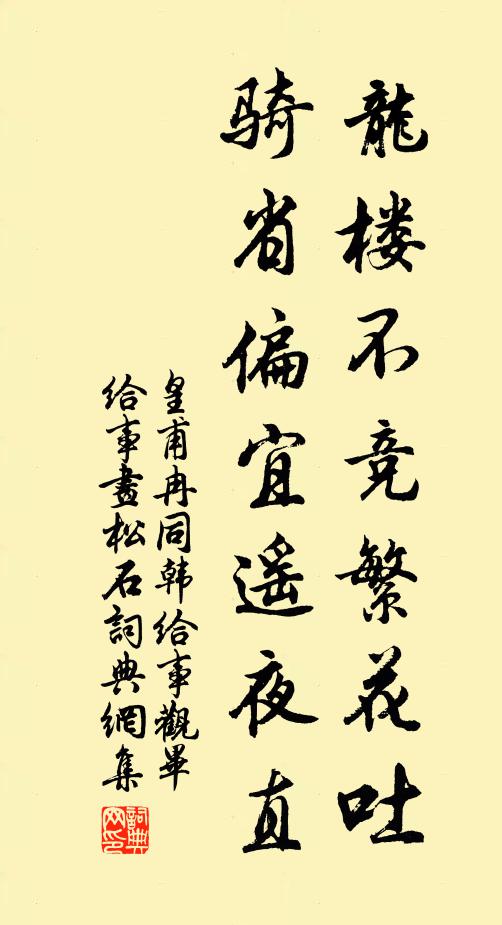 龍楼不竞繁花吐
骑省偏宜遥夜直
皇甫冉同韩给事觀畢
给事畫松石詞典網集
詞典网印